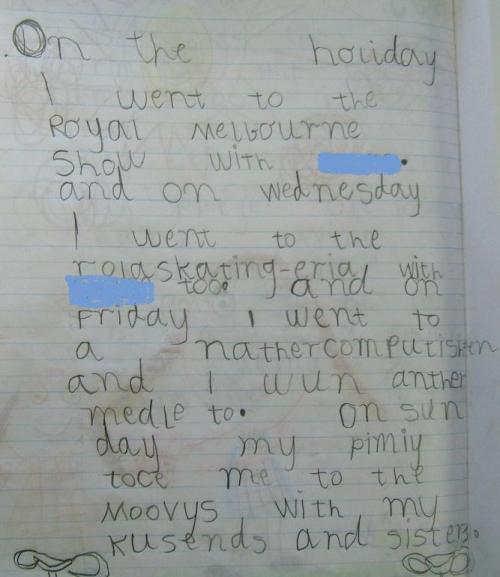 On the holiday
I went to the
Royal Melbourne
Show with
and on wednesday
I went to the
rolaskating-eria with
too. and on
Friday I went to
a nathercomputishen
and I wun anther
medle to. on sun
day my pimiy
toce me to the
Moovys with my
kusends and sisters.